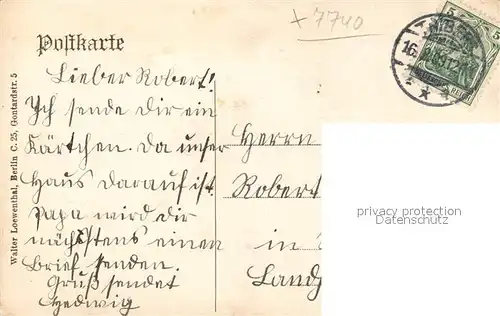 + 7740
Postkarte
Lieber Robert!
Ich sende dir ein
Kärtchen. Da unser
Haus darauf ist.
Papa wird dir
nächstens einen
Brief senden.
Gruß sendet
Hedwig
Walter Loewenthal, Berlin C. 25, Gontardstr. 5
Herrn
Robert
in
Land
privacy protection
Datenschutz
5
5
16.
REICH